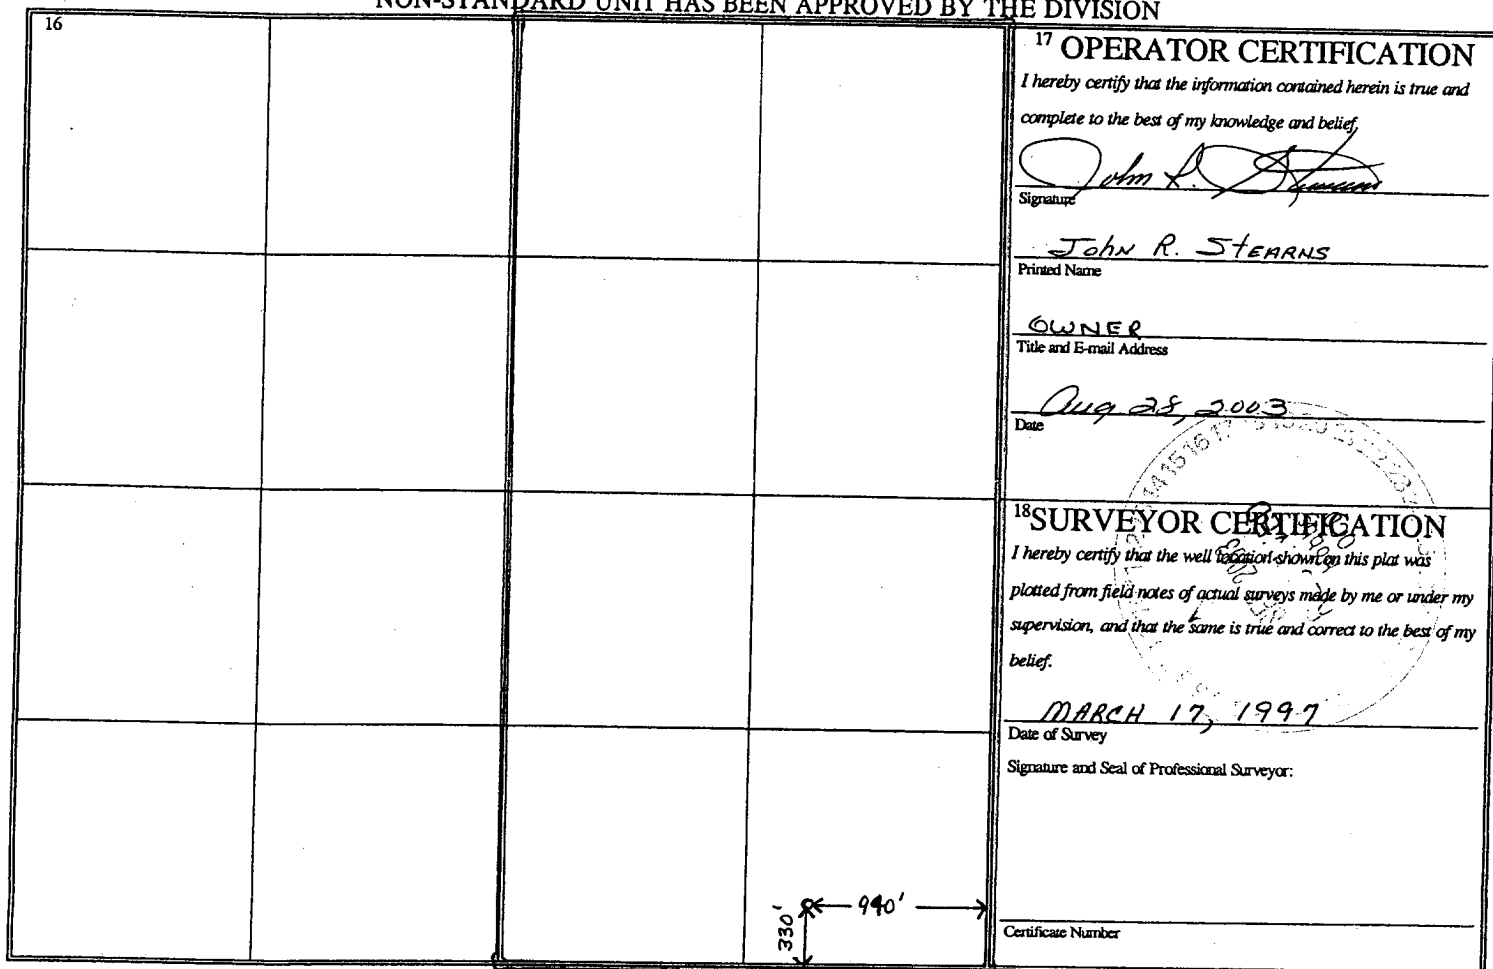 NON-STANDARD UNIT HAS BEEN APPROVED BY THE DIVISION
16
17 OPERATOR CERTIFICATION
I hereby certify that the information contained herein is true and
complete to the best of my knowledge and belief.
John R. Stearns
Signature
John R. STEARNS
Printed Name
OWNER
Title and E-mail Address
Aug 28, 2003
Date
18 SURVEYOR CERTIFICATION
I hereby certify that the well location shown on this plat was
plotted from field notes of actual surveys made by me or under my
supervision, and that the same is true and correct to the best of my
belief.
MARCH 17, 1997
Date of Survey
Signature and Seal of Professional Surveyor:
940'
330'
Certificate Number